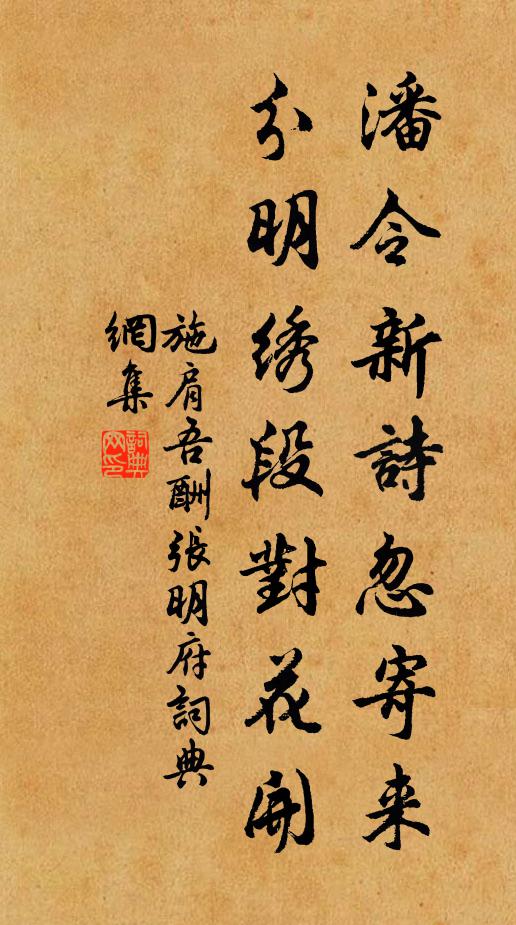 潘令新詩忽寄来
分明绣段對花開
施肩吾酬張明府詞典
網集
詞典
网印